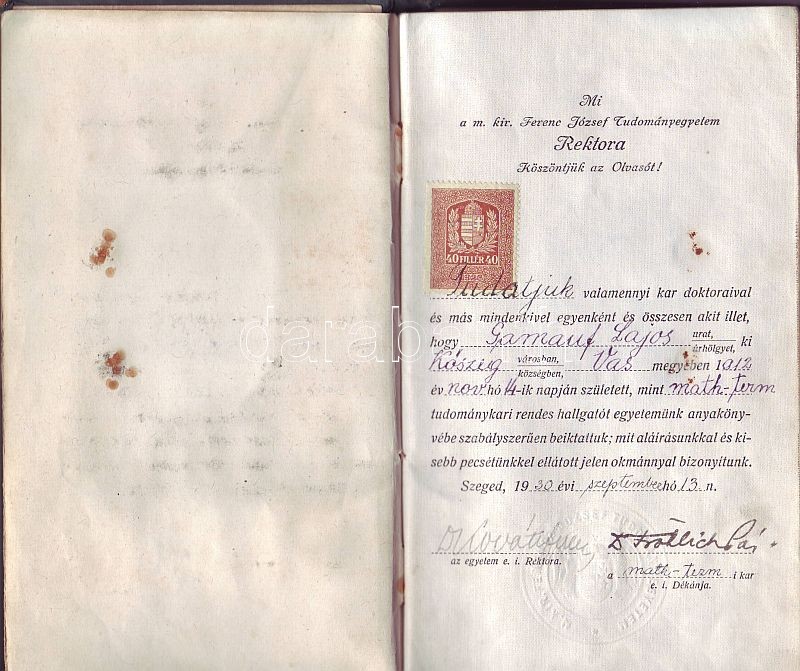 Mi
a m. kir. Ferenc József Tudományegyetem
Rektora
Köszöntjük az Olvasót!
40 FILLÉR 40
Tudatjuk valamennyi kar doktoraival
és más mindenkivel egyenként és összesen akit illet,
hogy Gamauf Lajos urat, úrhölgyet, ki
Kőszeg városban, községben, Vas megyében 1912
év nov hó 14-ik napján született, mint math-term
tudománykari rendes hallgatót egyetemünk anyaköny-
vébe szabályszerűen beiktattuk; mit aláírásunkkal és ki-
sebb pecsétünkkel ellátott jelen okmánnyal bizonyítunk.
Szeged, 1930 évi szeptember hó 13. n.
Dr Fröhlich Pál
az egyetem e. i. Rektora.
a math-term i kar
e. i. Dékánja.